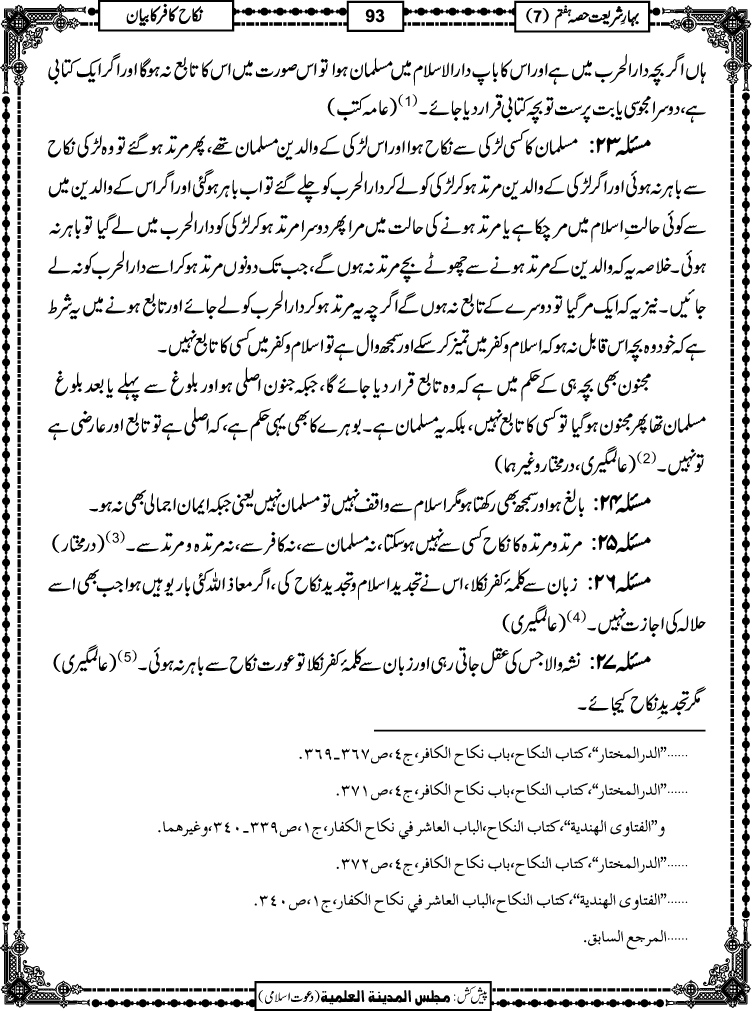 بہارِ شریعت حصہ ہفتم (7)
93
نکاح کافر کا بیان
ہاں اگر بچہ دارالحرب میں ہے اور اس کا باپ دارالاسلام میں مسلمان ہوا تو اس صورت میں اس کا تابع نہ ہوگا اور اگر ایک کتابی
ہے، دوسرا مجوسی یا بت پرست تو بچہ کتابی قرار دیا جائے۔(1) (عامہ کتب)
مسئلہ ۲۳: مسلمان کا کسی لڑکی سے نکاح ہوا اور اس لڑکی کے والدین مسلمان تھے، پھر مرتد ہوگئے تو وہ لڑکی نکاح
سے باہر نہ ہوئی اور اگر لڑکی کے والدین مرتد ہو کر لڑکی کو لے کر دارالحرب کو چلے گئے تو اب باہر ہوگئی اور اگر اس کے والدین میں
سے کوئی حالتِ اسلام میں مر چکا ہے یا مرتد ہونے کی حالت میں مرا پھر دوسرا مرتد ہو کر لڑکی کو دارالحرب میں لے گیا تو باہر نہ
ہوئی۔ خلاصہ یہ کہ والدین کے مرتد ہونے سے چھوٹے بچے مرتد نہ ہوں گے، جب تک دونوں مرتد ہو کر اسے دارالحرب کو نہ لے
جائیں۔ نیز یہ کہ ایک مر گیا تو دوسرے کے تابع نہ ہوں گے اگرچہ یہ مرتد ہو کر دارالحرب کو لے جائے اور تابع ہونے میں یہ شرط
ہے کہ خود وہ بچہ اس قابل نہ ہو کہ اسلام و کفر میں تمیز کر سکے اور سمجھ وال ہے تو اسلام و کفر میں کسی کا تابع نہیں۔
مجنون بھی بچہ ہی کے حکم میں ہے کہ وہ تابع قرار دیا جائے گا، جبکہ جنون اصلی ہو اور بلوغ سے پہلے یا بعد بلوغ
مسلمان تھا پھر مجنون ہوگیا تو کسی کا تابع نہیں، بلکہ یہ مسلمان ہے۔ بوہرے کا بھی یہی حکم ہے، کہ اصلی ہے تو تابع اور عارضی ہے
تو نہیں۔(2) (عالمگیری، درمختار وغیرہما)
مسئلہ ۲۴: بالغ ہو اور سمجھ بھی رکھتا ہو مگر اسلام سے واقف نہیں تو مسلمان نہیں یعنی جبکہ ایمان اجمالی بھی نہ ہو۔
مسئلہ ۲۵: مرتد و مرتدہ کا نکاح کسی سے نہیں ہو سکتا، نہ مسلمان سے، نہ کافر سے، نہ مرتدہ و مرتد سے۔(3) (درمختار)
مسئلہ ۲۶: زبان سے کلمۂ کفر نکلا، اس نے تجدیدِ اسلام و تجدیدِ نکاح کی، اگر معاذ اللہ کئی بار یوہیں ہوا جب بھی اسے
حلالہ کی اجازت نہیں۔(4) (عالمگیری)
مسئلہ ۲۷: نشہ والا جس کی عقل جاتی رہی اور زبان سے کلمۂ کفر نکلا تو عورت نکاح سے باہر نہ ہوئی۔(5) (عالمگیری)
مگر تجدیدِ نکاح کیجائے۔
......"الدرالمختار"، کتاب النکاح، باب نکاح الکافر، ج٤، ص٣٦٧ـ٣٦٩.
......"الدرالمختار"، کتاب النکاح، باب نکاح الکافر، ج٤، ص٣٧١.
و"الفتاوی الهندية"، کتاب النکاح، الباب العاشر في نکاح الکفار، ج١، ص٣٣٩ـ٣٤٠، وغیرهما.
......"الدرالمختار"، کتاب النکاح، باب نکاح الکافر، ج٤، ص٣٧٢.
......"الفتاوی الهندية"، کتاب النکاح، الباب العاشر في نکاح الکفار، ج١، ص٣٤٠.
......المرجع السابق.
پیش کش: مجلس المدينة العلمية (دعوت اسلامی)